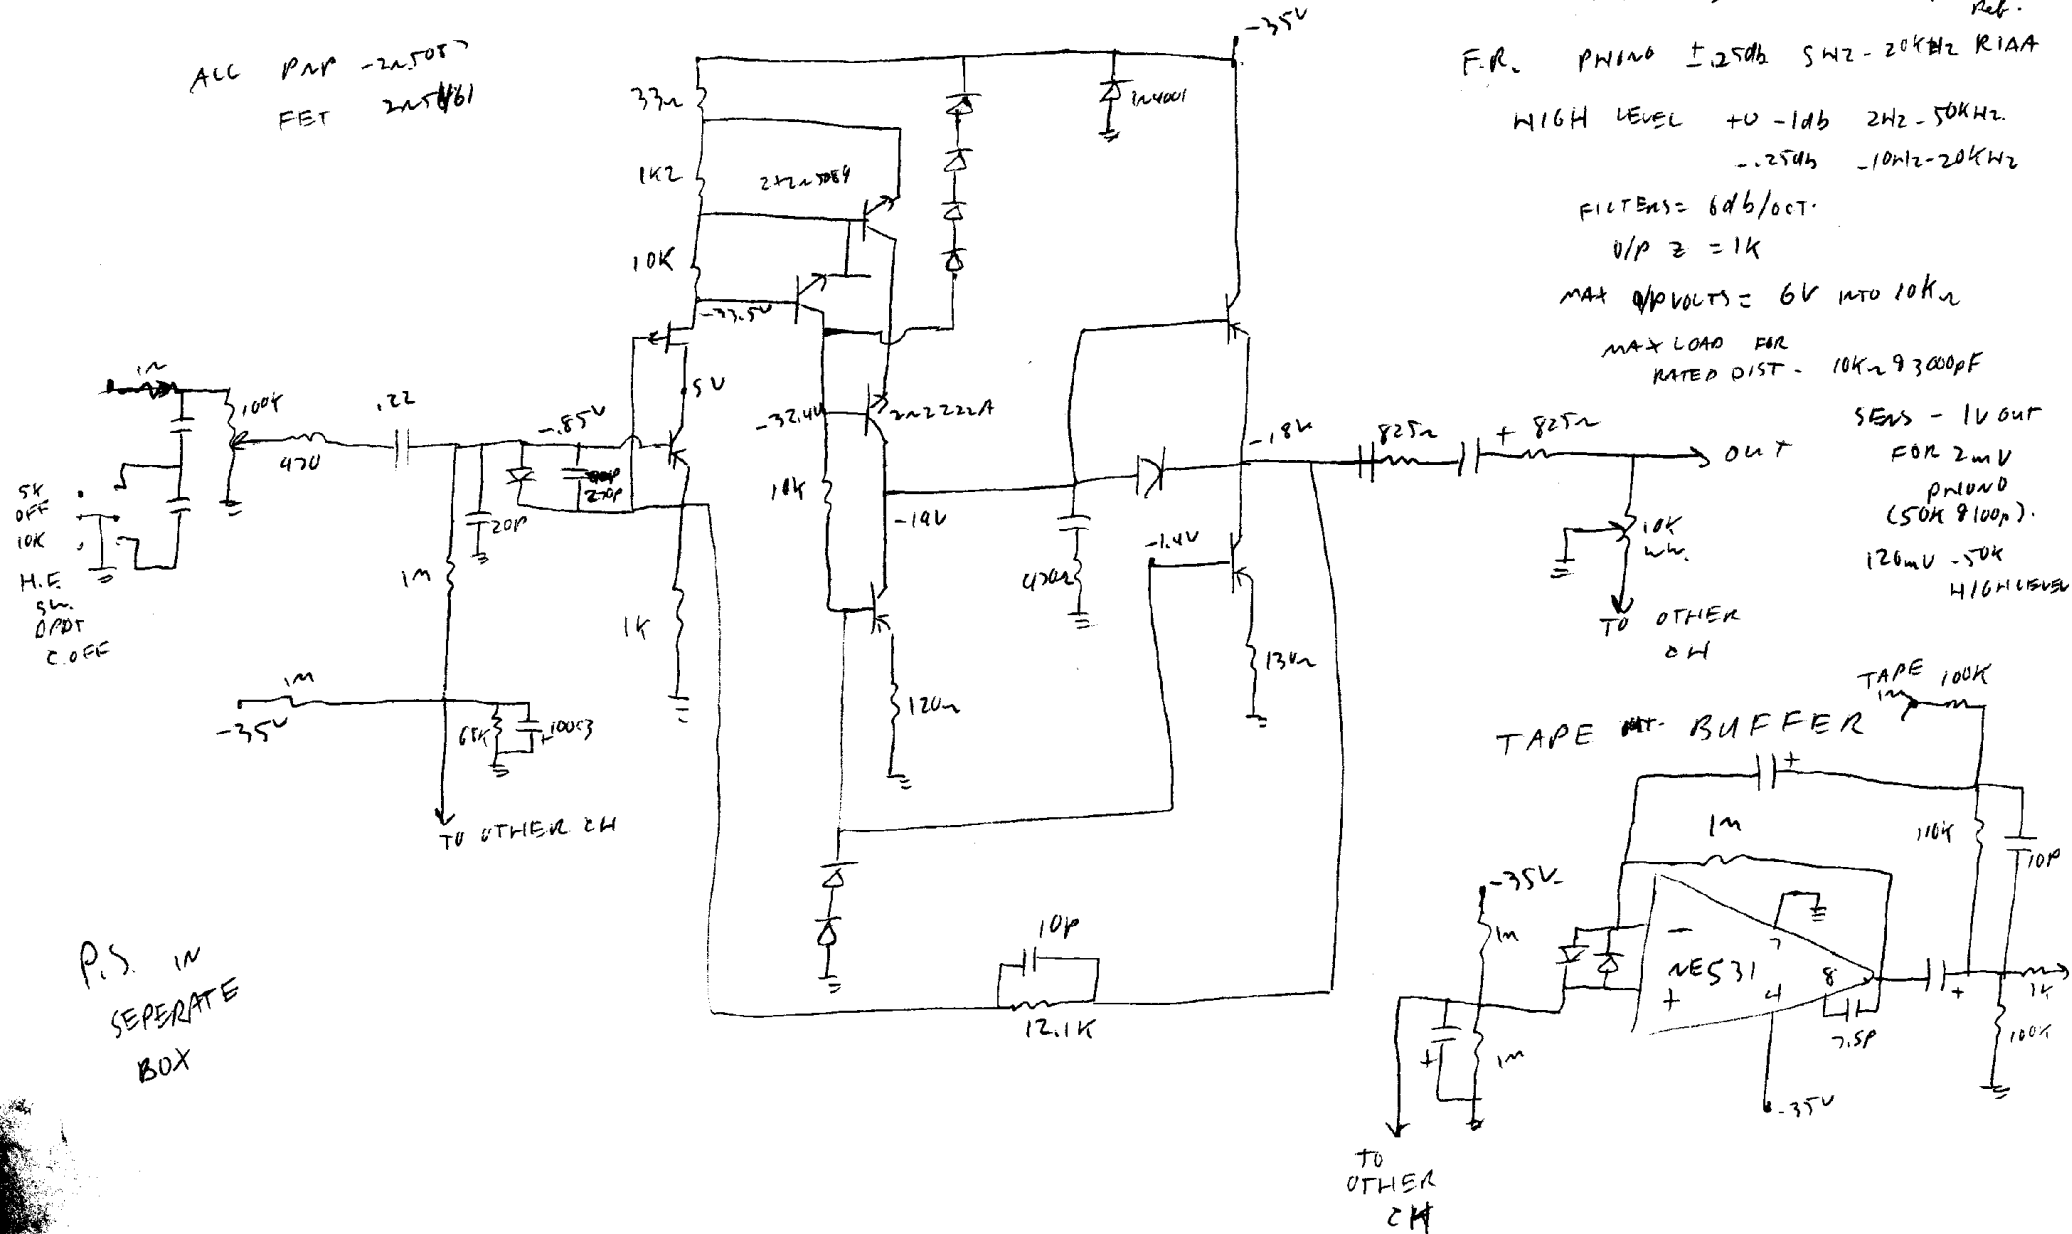 Ref.
-35V
ALL PNP -2N5087
FET 2N5461
F.R. PHONO ±.25db 5HZ-20KHz RIAA
HIGH LEVEL +0 -1db 2HZ-50KHz.
-.25db -10Hz-20KHz
FILTERS= 6db/OCT.
O/P Z = 1K
MAX O/P VOLTS = 6V INTO 10K
MAX LOAD FOR
RATED DIST - 10K & 3000pF
SENS - 1V OUT
FOR 2mV
PHONO
(50K & 100p).
120mV -50K
HIGH LEVEL
33Ω
1K2
2x2N5089
1N4001
10K
-33.5V
1M
100K
470
.22
-.85V
5V
-32.4V
2N2222A
-18V
825Ω
+ 825Ω
OUT
5K
OFF
10K
H.F.
SW.
DPDT
C.OFF
20P
270P
10K
-19V
470Ω
-1.4V
10K
WW.
TO OTHER
CH
1M
1K
120Ω
130Ω
1M
-35V
68K
+
TO OTHER CH
TAPE 100K
TAPE BUFFER
+
1M
110K
10P
-35V
1M
-
NE531
+
7
8
4
7.5P
+
1K
100K
+
1M
-35V
TO
OTHER
CH
10P
12.1K
P.S. IN
SEPERATE
BOX